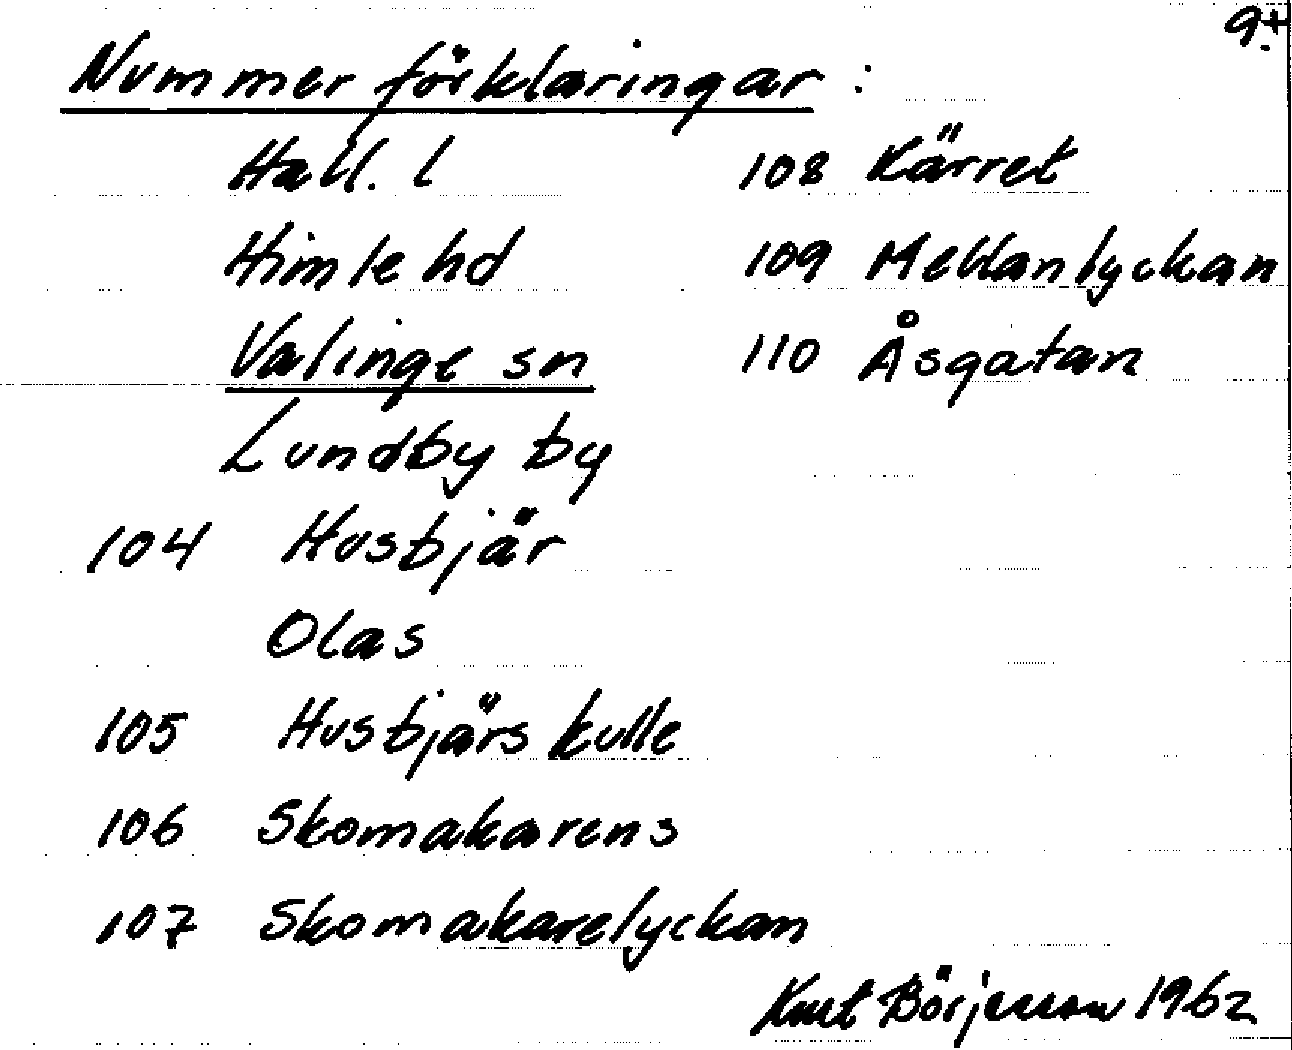 9.
Nummerförklaringar :
Hall. l
Himle hd
Valinge sn
Lundby by
104 Husbjär
Olas
105 Husbjärs kulle
106 Skomakarens
107 Skomakarelyckan
108 Kärret
109 Mellanlyckan
110 Åsgatan
Kurt Börjesson 1962